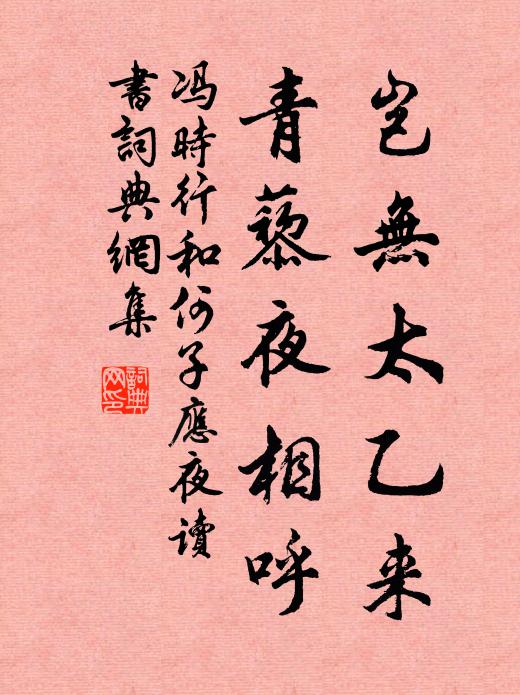 岂無太乙来
青藜夜相呼
冯時行和何子應夜读
書詞典網集
詞典
网印